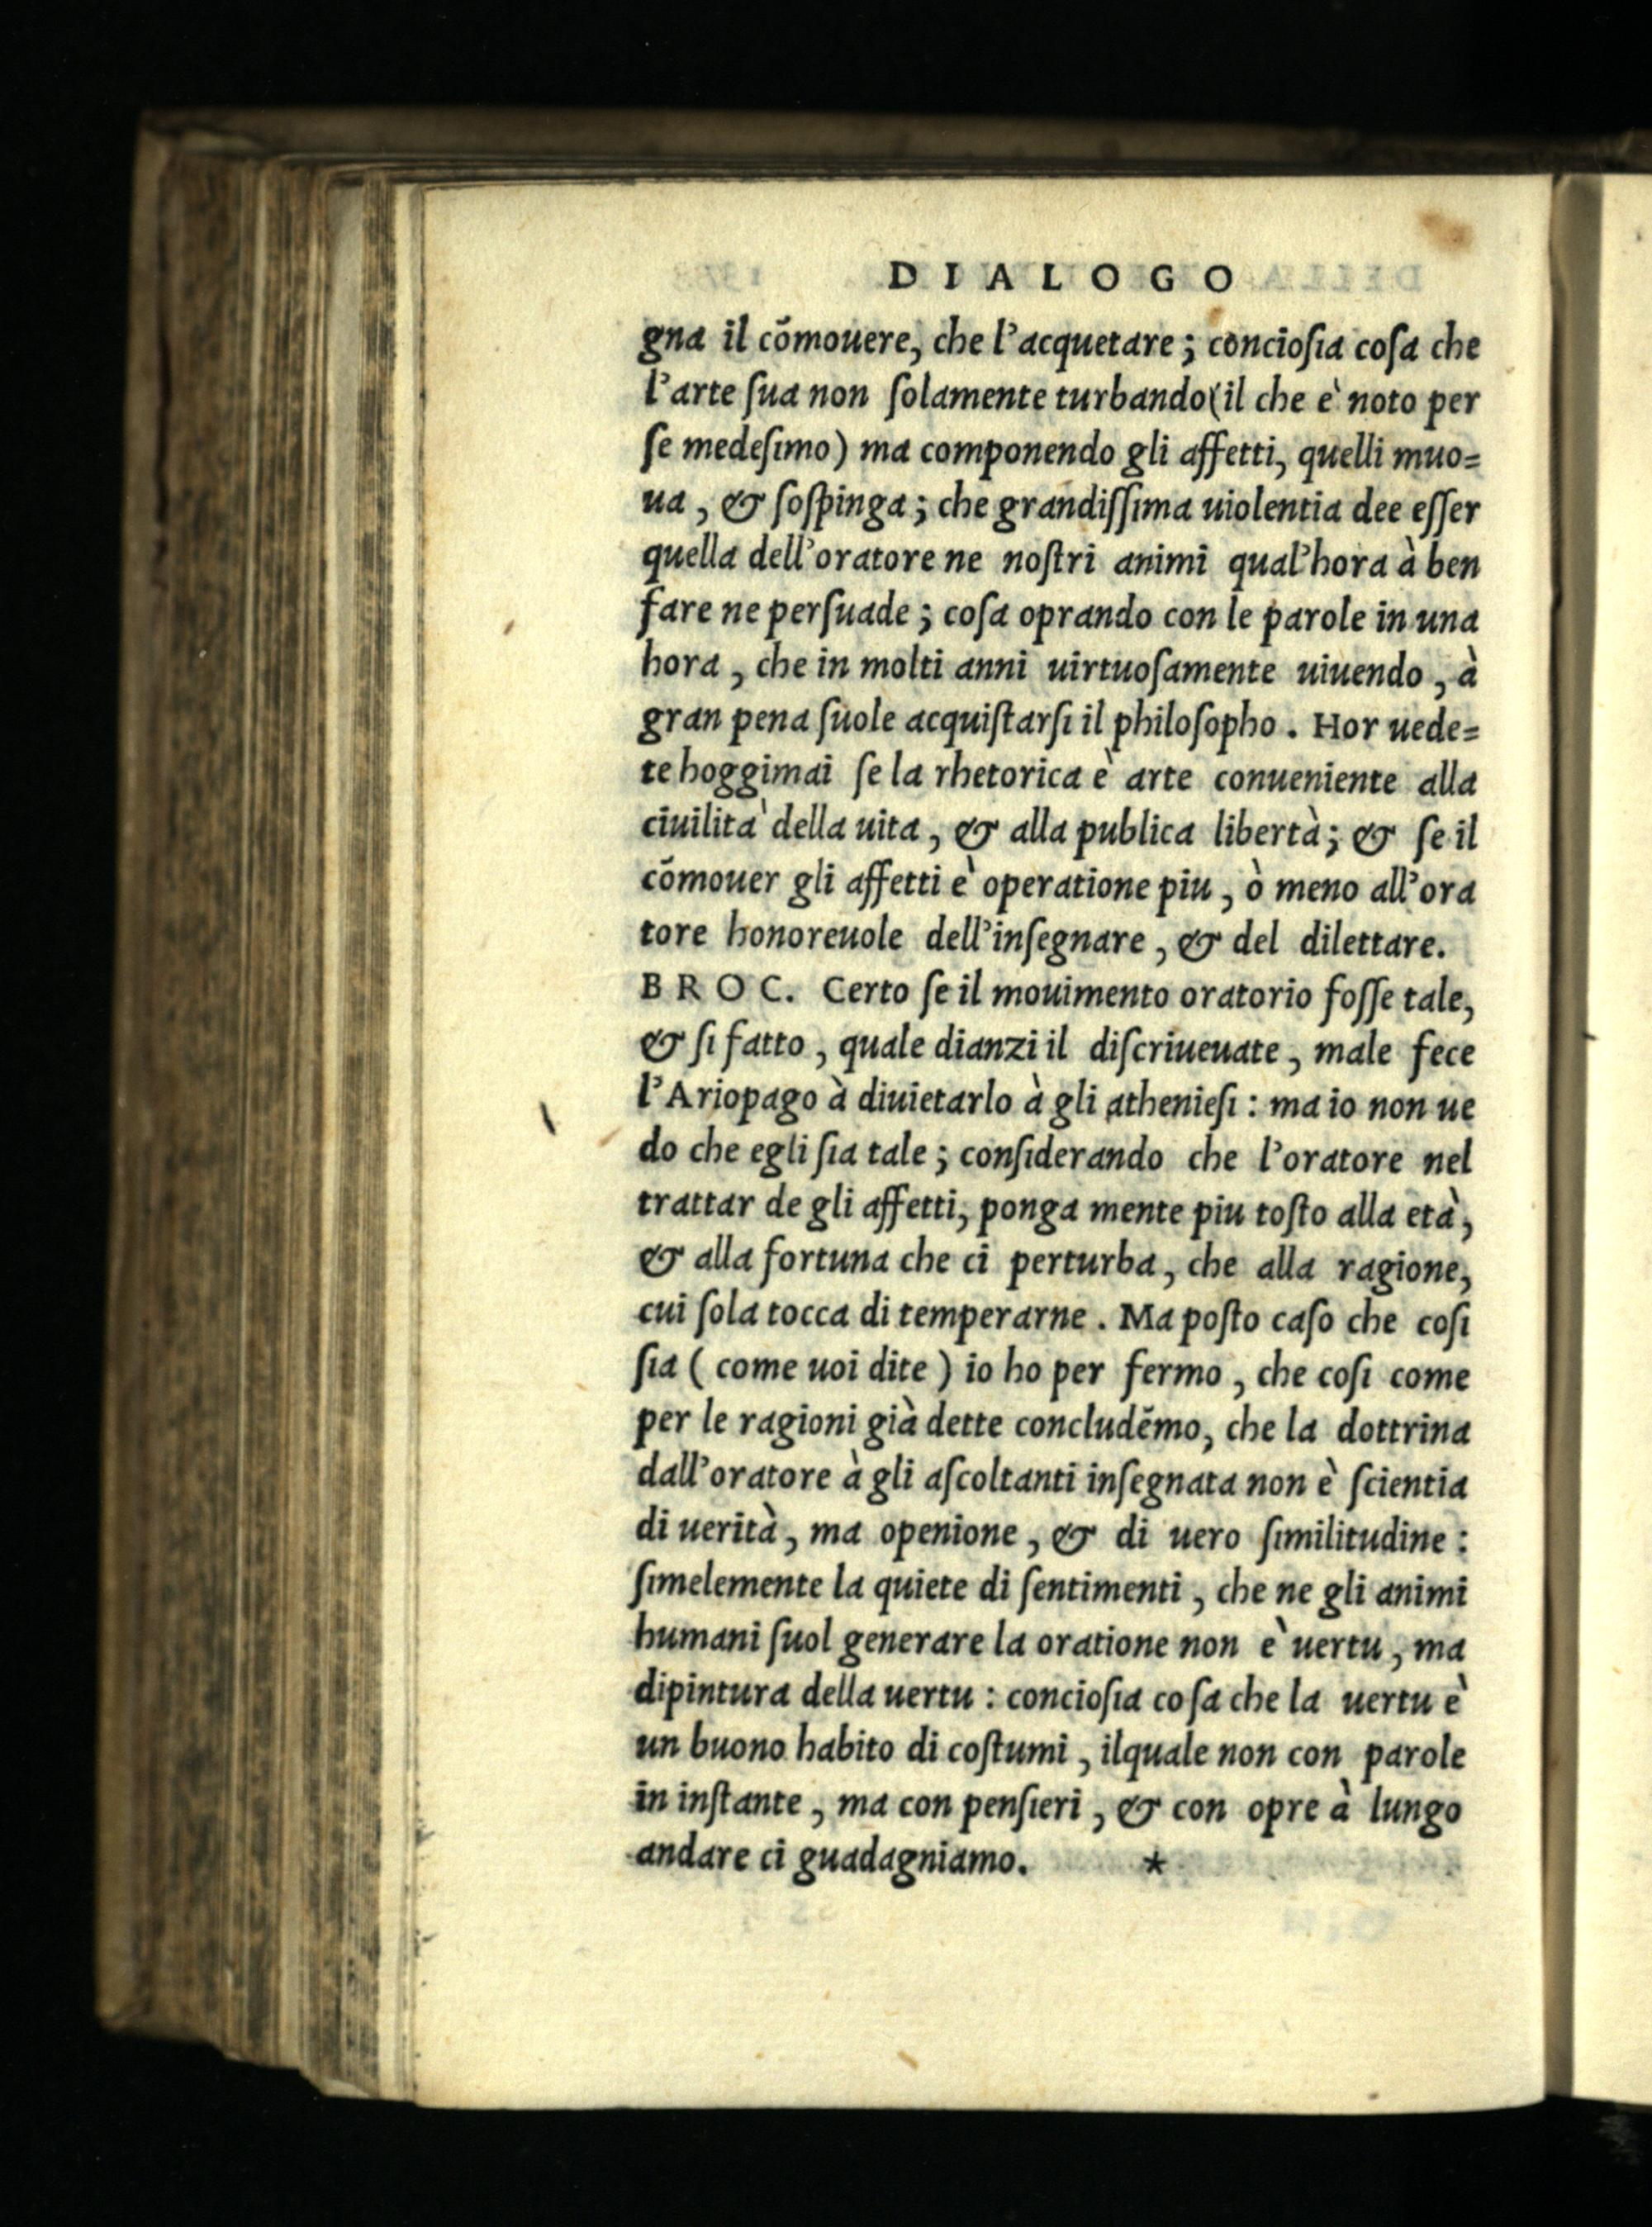 DIALOGO
gna il cõmouere, che l'acquetare; concioſia coſa che
l'arte ſua non ſolamente turbando (il che è noto per
ſe medeſimo) ma componendo gli affetti, quelli muo=
ua, & ſoſpinga; che grandiſſima uiolentia dee eſſer
quella dell'oratore ne noſtri animi qual'hora à ben
fare ne perſuade; coſa oprando con le parole in una
hora, che in molti anni uirtuoſamente uiuendo, à
gran pena ſuole acquiſtarſi il philoſopho. Hor uede=
te hoggimai ſe la rhetorica è arte conueniente alla
ciuilità della uita, & alla publica libertà; & ſe il
cõmouer gli affetti è operatione piu, ò meno all'ora
tore honoreuole dell'inſegnare, & del dilettare.
BROC. Certo ſe il mouimento oratorio foſſe tale,
& ſi fatto, quale dianzi il diſcriueuate, male fece
l'Ariopago à diuietarlo à gli athenieſi: ma io non ue
do che egli ſia tale; conſiderando che l'oratore nel
trattar de gli affetti, ponga mente piu toſto alla età,
& alla fortuna che ci perturba, che alla ragione,
cui ſola tocca di temperarne. Ma poſto caſo che coſi
ſia (come uoi dite) io ho per fermo, che coſi come
per le ragioni già dette concludẽmo, che la dottrina
dall'oratore à gli aſcoltanti inſegnata non è ſcientia
di uerità, ma openione, & di uero ſimilitudine:
ſimelemente la quiete di ſentimenti, che ne gli animi
humani ſuol generare la oratione non è uertu, ma
dipintura della uertu: concioſia co ſa che la uertu è
un buono habito di coſtumi, ilquale non con parole
in inſtante, ma con penſieri, & con opre à lungo
andare ci guadagniamo. *